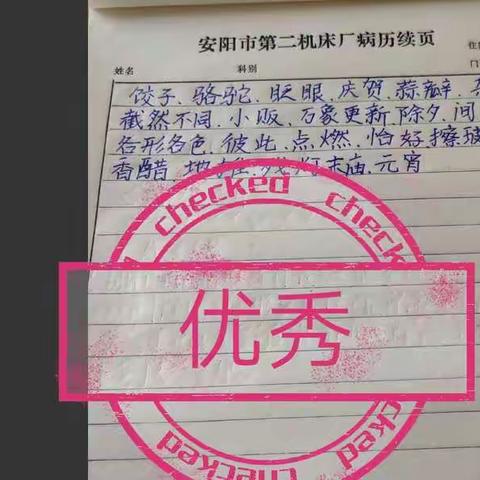 安阳市第二机床厂病历续页
姓名 科别
饺子、骆驼、眨眼、庆贺、蒜瓣、
截然不同、小贩、万象更新、除夕、间
各形各色、彼此、点燃、恰好、擦
香醋、地摊、残灯末庙、元宵
checked checked
优秀
checked checked